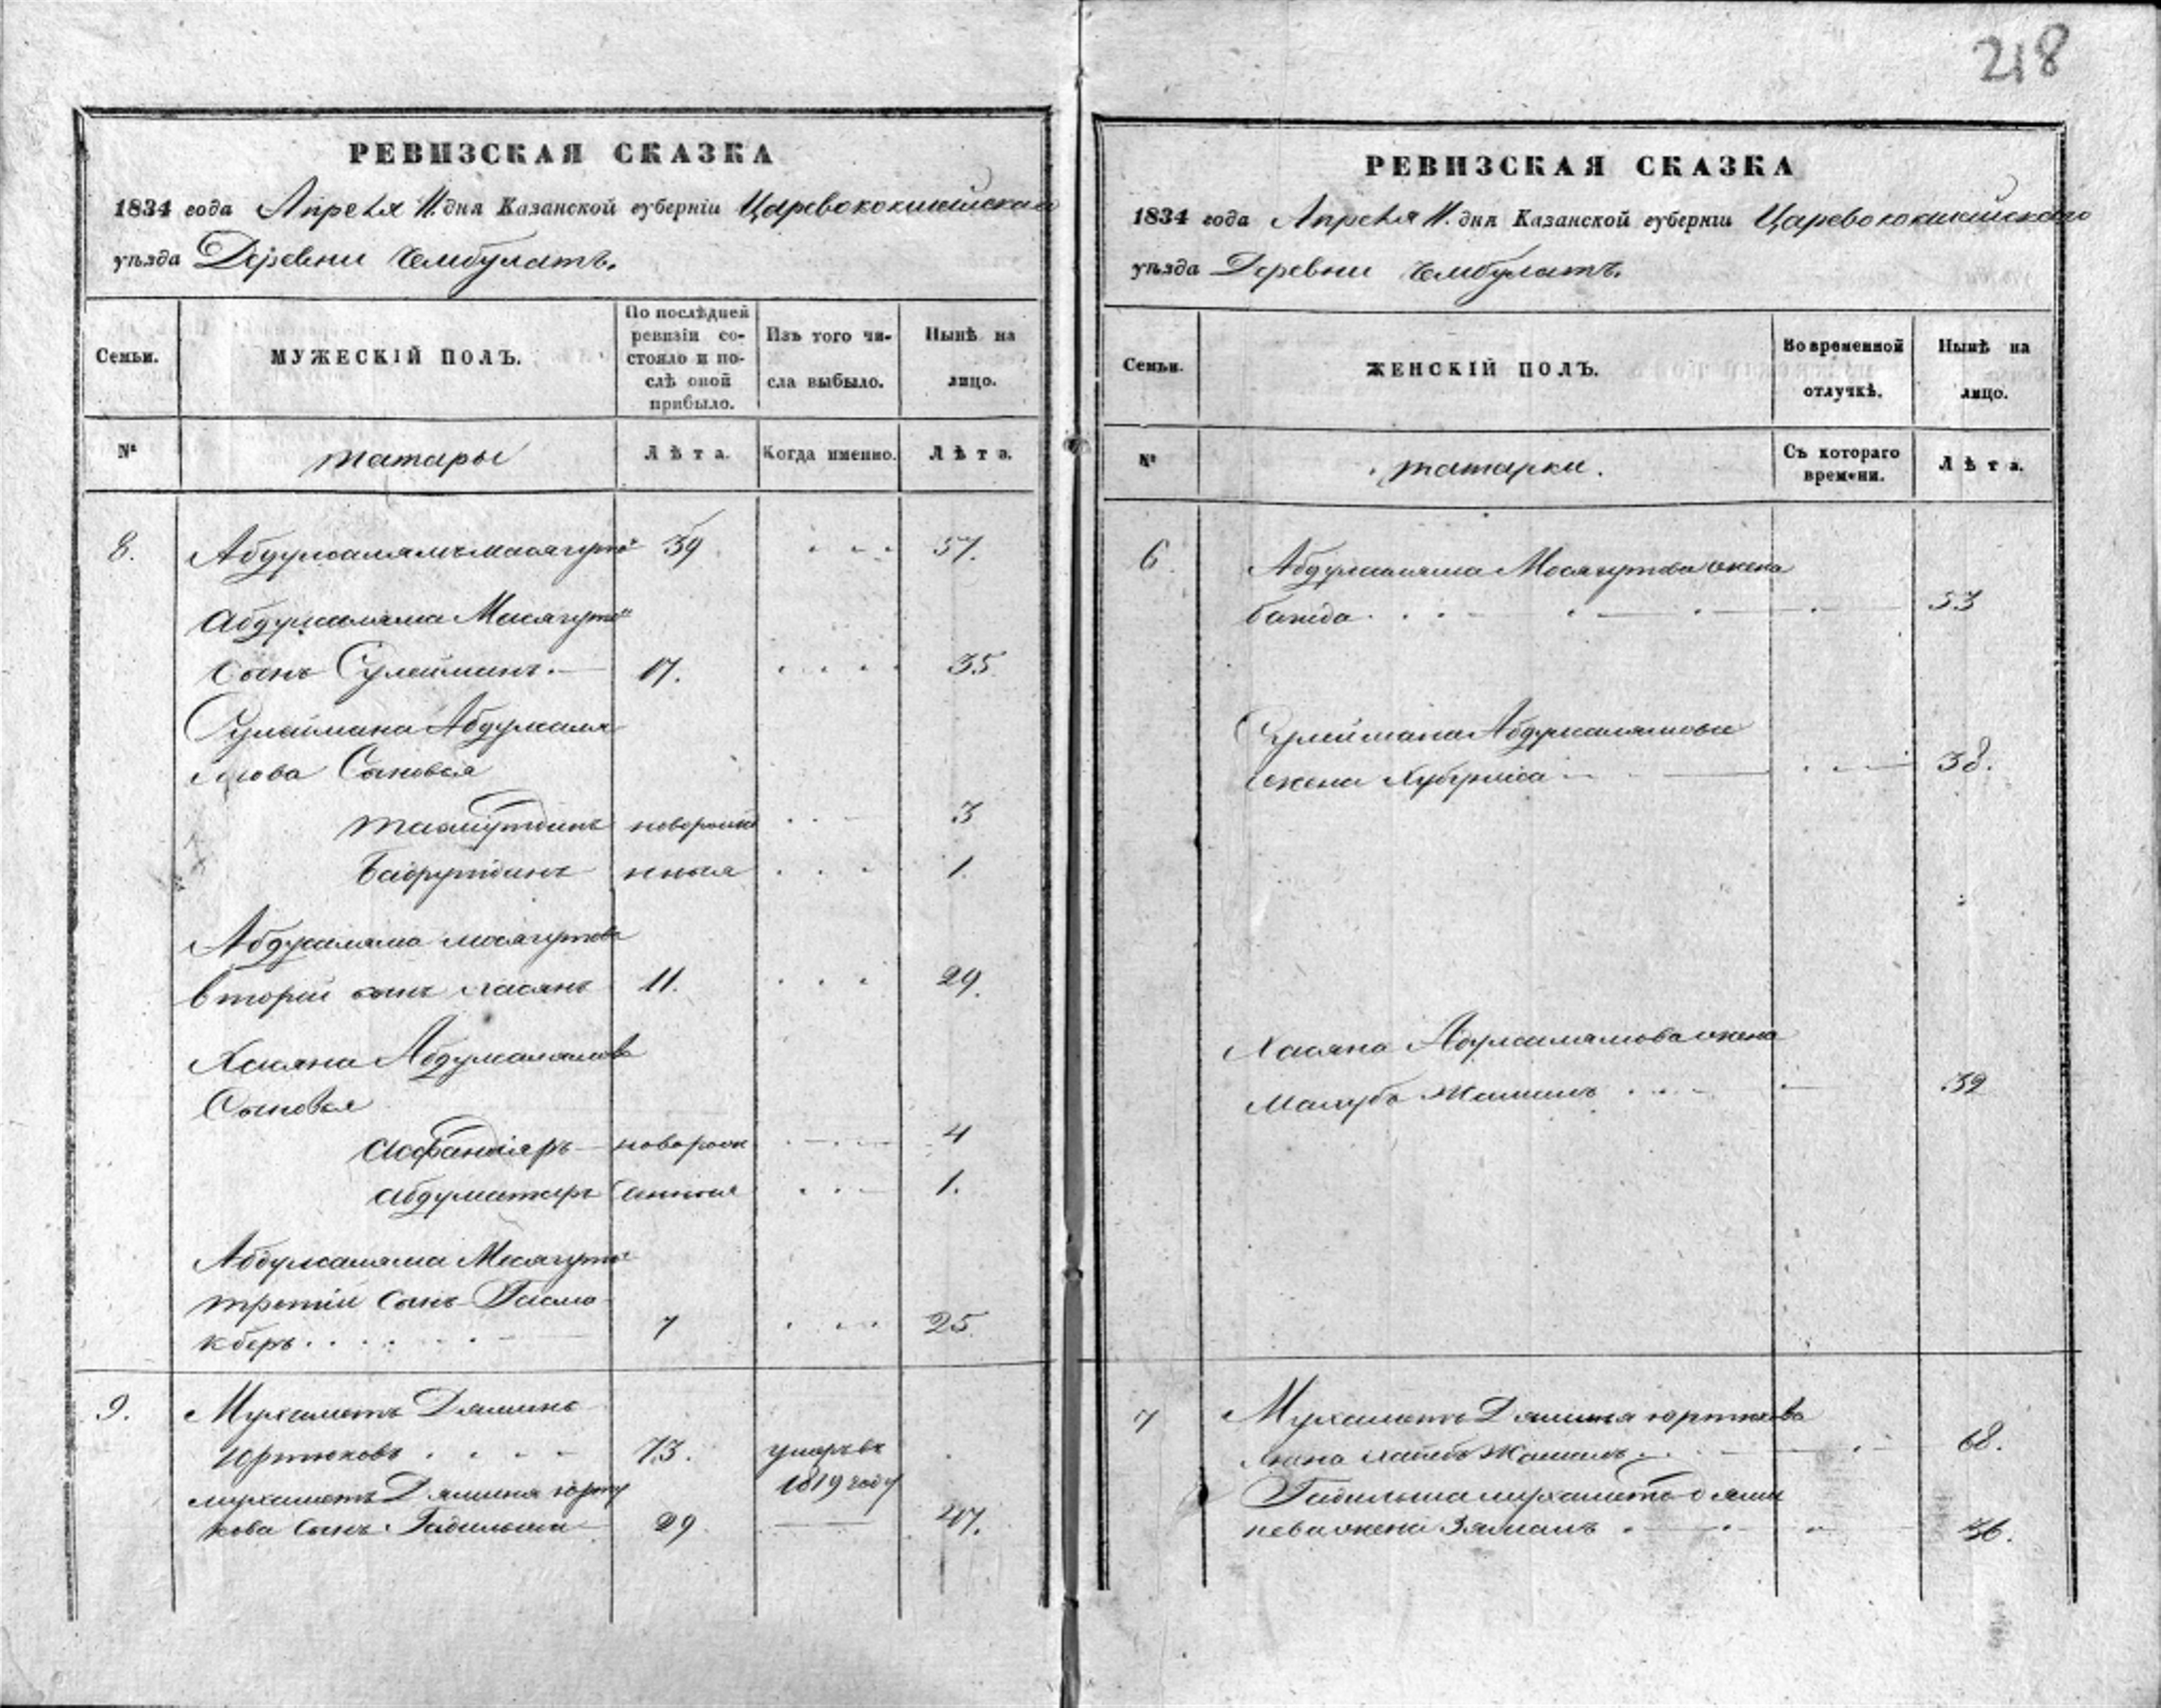 218
РЕВИЗСКАЯ СКАЗКА
1834 года Апреля 11. дня Казанской губерніи Царевококшайскаго
уѣзда Деревни Чембулатъ.
Семьи.
МУЖЕСКІЙ ПОЛЪ.
По послѣдней ревизіи состояло и послѣ оной прибыло.
Изъ того числа выбыло.
Нынѣ на лицо.
№
татары
Лѣта.
Когда именно.
Лѣта.
8. Абдулсалямъ Масягуто 39 57.
Абдулсаляма Масягуто
Сынъ Сулейманъ. 17. 35
Сулеймана Абдулсаля
мова Сыновья
новорожде 3
Бадрутдинъ нныя 1.
Абдусаляма Масягутова
второй сынъ Хасянъ 11. 29.
Хасяна Абдулсалямова
Сыновья
Асфандіяръ новорож 4
Абдулсатаръ денныя 1.
Абдулсаляма Масягуто
третій Сынъ
кберь 7 25.
9. Мухаметъ Дяминъ
Юртюковъ 73. умеръ въ
1819 году
Мухаметъ Дямина Юртю
кова Сынъ Гадильша 29 47.
РЕВИЗСКАЯ СКАЗКА
1834 года Апреля 11. дня Казанской губерніи Царевококшайскаго
уѣзда Деревни Чембулатъ.
Семьи.
ЖЕНСКІЙ ПОЛЪ.
Во временной отлучкѣ.
Нынѣ на лицо.
№
татарки.
Съ котораго времени.
Лѣта.
6. Абдулсаляма Масягутова жена
53
Сулеймана Абдулсалямова
жена 38.
Хасяна Абдулсалямова жена
Жамаль 32
7 Мухаметъ Дямина Юртюкова
жена Жамаль 68.
Гадильша Мухаметъ Дями
нева жена Зямаль 36.